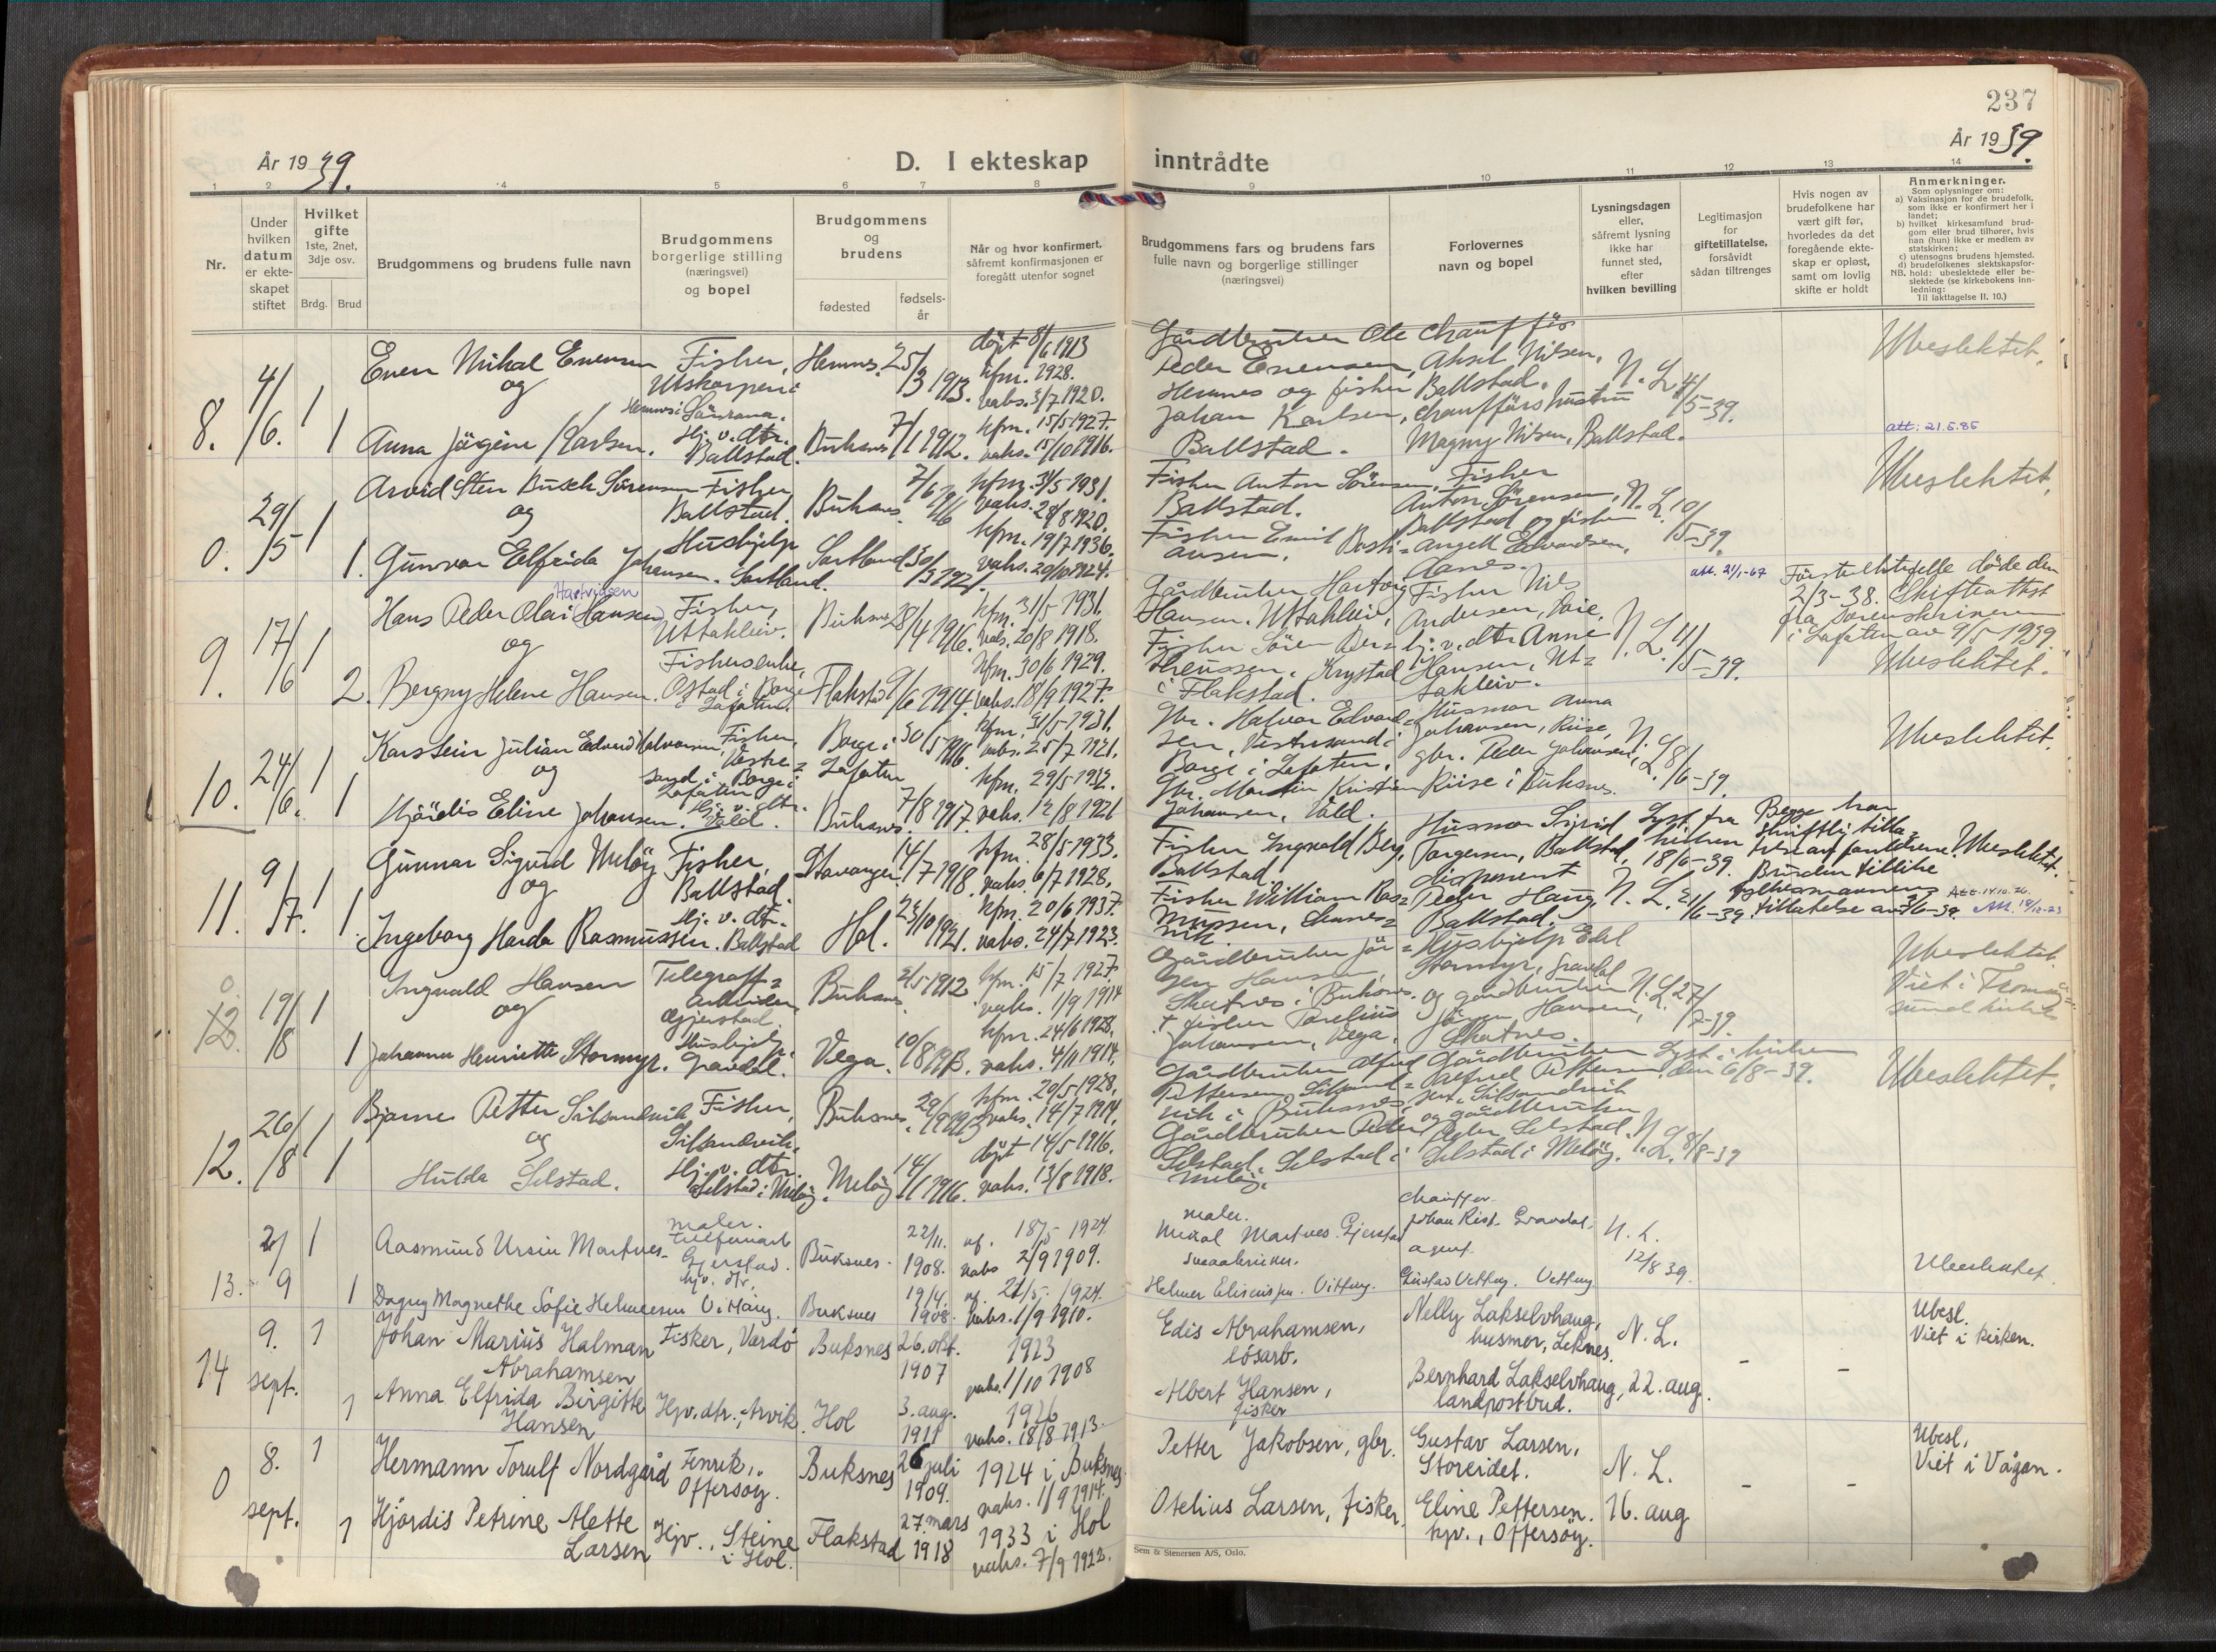 237
År 1939.
År 1939.
D. I ekteskap inntrådte
1 2 4 5 6 7 8 9 10 11 12 13 14
Nr.
Under hvilken datum er ekteskapet stiftet
Hvilket gifte 1ste, 2net, 3dje osv.
Brdg. Brud
Brudgommens og brudens fulle navn
Brudgommens borgerlige stilling (næringsvei) og bopel
Brudgommens og brudens
fødested
fødselsår
Når og hvor konfirmert, såfremt konfirmasjonen er foregått utenfor sognet
Brudgommens fars og brudens fars fulle navn og borgerlige stillinger (næringsvei)
Forlovernes navn og bopel
Lysningsdagen eller, såfremt lysning ikke har funnet sted, efter hvilken bevilling
Legitimasjon for giftetillatelse, forsåvidt sådan tiltrenges
Hvis nogen av brudefolkene har vært gift før, hvorledes da det foregående ekteskap er opløst, samt om lovlig skifte er holdt
Anmerkninger.
Som oplysninger om:
a) Vaksinasjon for de brudefolk, som ikke er konfirmert her i landet;
b) hvilket kirkesamfund brudgom eller brud tilhører, hvis han (hun) ikke er medlem av statskirken;
c) utensogns brudens hjemsted.
d) brudefolkenes slektskapsforhold: ubeslektede eller beslektede (se kirkebokens innledning:
NB.
Til iakttagelse II. 10.)
8. 4/6. 1 Even Mikal Evensen Fisker, Utskarpen i Hemnes i Sörrana. Hemnes. 25/3 1913. döpt 8/6 1913 kfm. 1928. vaks. 3/7 1920.
og
1 Anna Jörgine Karlsen. Hj. v. dtr. Ballstad. Buksnes 7/1 1912. kfm. 15/5 1927. vaks. 15/10 1916.
Gårdbruker Ole Peder Evensen, Hemnes og fisker Johan Karlsen, Ballstad.
chaufför Aksel Nilsen, Ballstad. chaufförs hustru Magny Nilsen, Ballstad.
N. L. 4/5-39.
Ubeslektet.
att: 21.5.85
0. 29/5 1 Arvid Sten Busch Sörensen Fisker Ballstad. Buksnes. 7/6 1916 kfm. 31/5 1931. vaks. 28/8 1920.
og
1. Gunvor Elfrida Johansen. Hushjelp Sortland. Sortland 30/3 1921. kfm. 19/7 1936. vaks. 20/10 1924.
Fisker Anton Sörensen, Ballstad.
Fisker Anton Sörensen, Ballstad og fisker Angell Edvardsen,
N. L. 10/5-39.
Ubeslektet.
9. 17/6 1 Hans Peder Olai Hansen Hartvigsen Fisker, Uttakleiv. Buksnes 28/4 1916. kfm. 31/5 1931. vaks. 20/8 1918.
og
2. Bergny Helene Hansen. Fiskerenke, Ostad i Borge i Lofoten. Flakstad 9/6 1914. kfm. 30/6 1929. vaks. 18/9 1927.
Gårdbruker Hartvig Hansen. Uttakleiv,
i Flakstad.
Fisker Nils Andersen, hj. v. dtr. Anne Hansen, Uttakleiv.
N. L. 4/5-39.
att. 21/1-67
döde den 2/3-38. Skifteattest fra Sorenskriveren i Lofoten av 9/5 1939.
Ubeslektet.
10. 24/6. 1 Karstein Julian Edvard Halvorsen, Fisker, Vestresand i Borge i Lofoten. Borge i Lofoten 30/5 1916. kfm. 31/5-1931. vaks. 25/7 1921.
og
1 Hjördis Eline Johansen. Hj. v. dtr. Vold. Buksnes. 7/8 1917. kfm. 29/5 1932. vaks. 12/8 1921
Gbr. Halvor Edvardsen, Vestresand i Borge i Lofoten.
Gbr. Martin Kristian Johansen, Vold.
Husmor Anna Johansen, Riise, gbr. Peder Johansen, Riise i Buksnes.
N. L. 8/6-39.
Ubeslektet.
11. 9/7. 1 Gunnar Sigurd Melöy Fisker, Ballstad. Stavanger. 14/7 1918. kfm. 28/5 1933. vaks. 6/7 1928.
og
1. Ingeborg Harda Rasmussen. Hj. v. dtr. Ballstad Hol. 23/10 1921. kfm. 20/6 1937. vaks. 24/7 1923.
Fisker Ingvald Berg, Ballstad.
Fisker William Rasmussen,
Husmor Sigrid Torgersen, Ballstad, disponent Peder Haug, Ballstad.
Lyst fra kirken 18/6-39. N. L. 21/6-39.
Begge har skriftlig tillatelse av foreldrene. Bruden tillike fylkesmannens tillatelse av 3/6-39.
Ubeslektet.
Att. 14.10.26.
0. 12. 19/8 1 Ingvald Hansen Telegrafarbeider Gjerstad. Buksnes. 2/5 1912 kfm. 15/7 1927. vaks. 1/9 1914
og
1 Johanna Henriette Stormyr. Hushjelp. Gravdal. Vega. 10/8 1913. kfm. 24/6 1928. vaks. 4/11 1914.
Gårdbruker Jörgen Hansen, Skotnes i Buksnes.
+ fisker Parelius Johansen, Vega.
Hushjelp Edel Stormyr, Gravdal og gårdbruker Jörgen Hansen, Skotnes.
N. L. 27/7-39.
Ubeslektet.
12. 26/8 1 Bjarne Petter Silsandvik Fisker, Silsandvik. Buksnes. kfm. 20/5 1928, vaks. 14/7 1914,
og
1 Hulda Selstad. Hj. v. dtr. Selstad i Melöy. Melöy. 14/1 1916. döpt 14/5 1916. vaks. 13/8 1918.
Gårdbruker Alfred Pettersen, Silsandvik i Buksnes,
Gårdbruker Peder Selstad, Selstad i Melöy.
Gårdbruker Alfred Pettersen, Silsandvik og gårdbruker Peder Selstad, Selstad i Melöy.
Lyst i kirken den 6/8-39. N. L. 8/8-39
Ubeslektet.
13. 2/9 1 Aasmund Ursin Martnes Maler. Gjerstad. Buksnes. 22/11. 1908. 18/5 1924 vaks 2/9 1909.
1 Dagny Magnethe Sofie hjv. dtr. Buksnes 19/4. 1908. 21/5. 1924. vaks. 1/9 1910.
maler. Mikal Martnes. Gjerstad
chauffør Johan Rist. Gravdal.
agent
N. L. 12/8 39.
Ubeslektet.
14 9. sept. 1 Johan Marius Halman Abrahamsen Fisker, Vardö Buksnes 26. okt. 1907 1923 vaks. 1/10 1908
1 Anna Elfrida Birgitte Hansen Hjv. dtr., Arvik. Hol 3. aug. 1911 1926 vaks. 18/8 1913.
Edis Abrahamsen, lösarb.
Albert Hansen, fisker
Nelly Lakselvhaug, husmor, Leknes.
Bernhard Lakselvhaug, landpostbud.
N. L. 22. aug.
-
-
Ubesl. Viet i kirken.
0 8. sept. 1 Hermann Torulf Nordgård Fenrik, Offersøy. Buksnes 26 juli 1909. 1924 i Buksnes. vaks. 1/9 1914.
1 Hjördis Petrine Alette Larsen Hjv., Steine i Hol. Flakstad 27. mars 1918 1933 i Hol vaks. 7/9 1922.
Petter Jakobsen, gbr.
Otelius Larsen, fisker.
Gustav Larsen, Storeidet.
Eline Pettersen. hjv., Offersöy.
N. L. 16. aug
-
-
Ubesl. Viet i Vågan.
Sem & Stenersen A/S, Oslo.